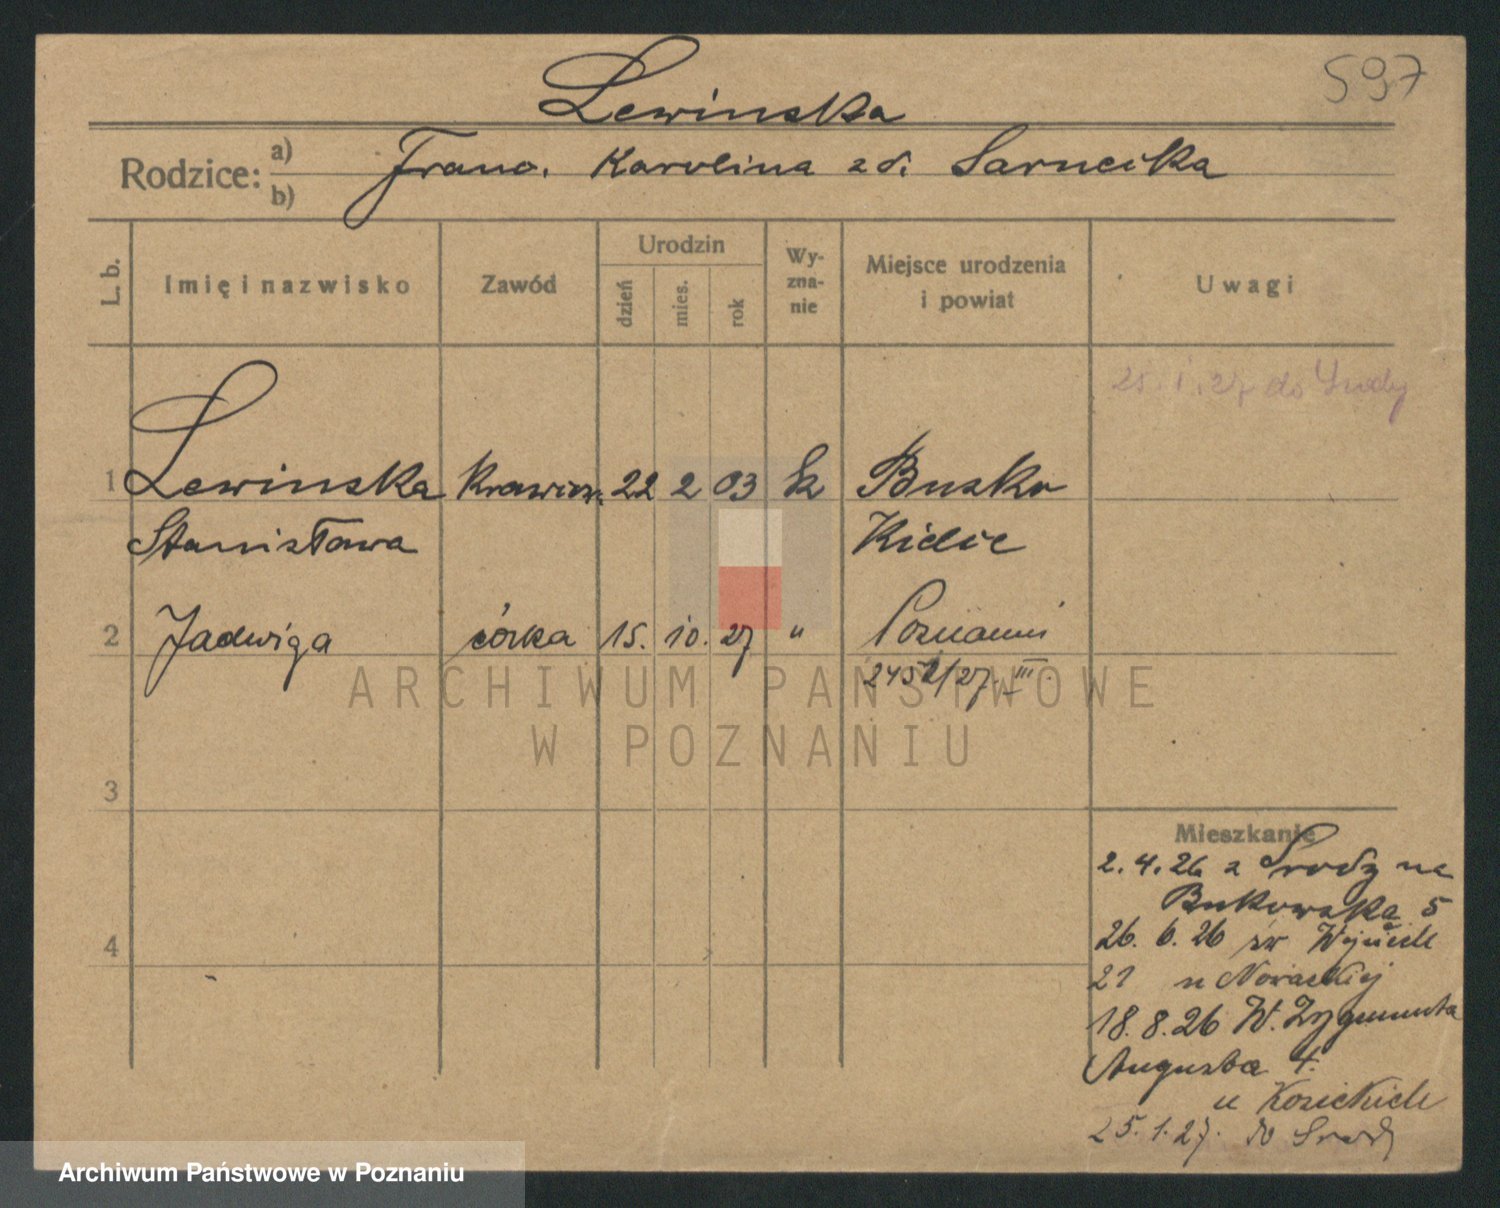 597
Lewinska
Rodzice: a) b) Franc. Karolina zd. Sarnecka
L. b.
Imię i nazwisko
Zawód
Urodzin
dzień
mies.
rok
Wy-
zna-
nie
Miejsce urodzenia
i powiat
Uwagi
25.1.27 do Środy
1 Lewinska Krawcz. 22 2 03 Busko
Stanisława Kielce
2 Jadwiga córka 15. 10. 27 " Poznaniu
2452/27 III
3
4
Mieszkanie
2.4.26 z Środy na
Bukowska 5
26.6.26 św Wojciech
21 u Nowackiej
18.8.26 W. Zygmunta
Augusta 4.
u Kosickich
25.1.27. do Środy
ARCHIWUM PAŃSTWOWE
W POZNANIU
Archiwum Państwowe w Poznaniu